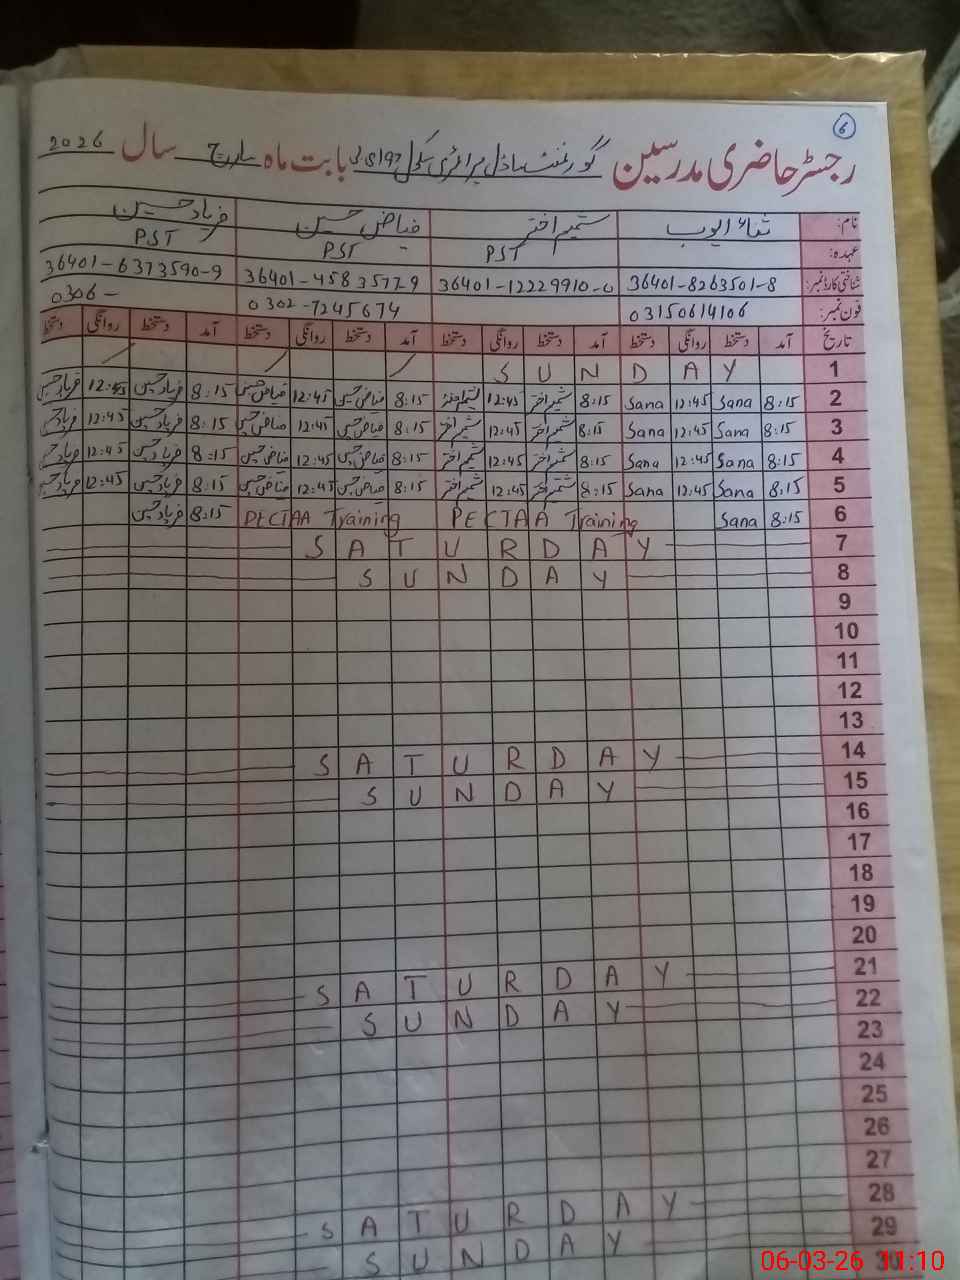 6
رجسٹر حاضری مدرسین گورنمنٹ ماڈل پرائمری سکول بابت ماہ مارچ سال 2026
نام: ثناء ایوب شمیم اختر فیاض حسین فریاد حسین
عہدہ: PST PST PST
شناختی کارڈ نمبر: 36401-8263501-8 36401-12229910-0 36401-4583577-9 36401-6373590-9
فون نمبر: 03150614106 0302-7245674 0306-
تاریخ آمد دستخط روانگی دستخط آمد دستخط روانگی دستخط آمد دستخط روانگی دستخط آمد دستخط روانگی دستخط
1 SUNDAY
2 8:15 Sana 12:45 Sana 8:15 شمیم اختر 12:45 شمیم اختر 8:15 فیاض حسین 12:45 فیاض حسین 8:15 فریاد حسین 12:45 فریاد حسین
3 8:15 Sana 12:45 Sana 8:15 شمیم اختر 12:45 شمیم اختر 8:15 فیاض حسین 12:45 فیاض حسین 8:15 فریاد حسین 12:45 فریاد حسین
4 8:15 Sana 12:45 Sana 8:15 شمیم اختر 12:45 شمیم اختر 8:15 فیاض حسین 12:45 فیاض حسین 8:15 فریاد حسین 12:45 فریاد حسین
5 8:15 Sana 12:45 Sana 8:15 شمیم اختر 12:45 شمیم اختر 8:15 فیاض حسین 12:45 فیاض حسین 8:15 فریاد حسین 12:45 فریاد حسین
6 8:15 Sana PECTAA Training PECTAA Training 8:15 فریاد حسین
7 SATURDAY
8 SUNDAY
9
10
11
12
13
14 SATURDAY
15 SUNDAY
16
17
18
19
20
21 SATURDAY
22 SUNDAY
23
24
25
26
27
28 SATURDAY
29 SUNDAY
30
06-03-26 11:10